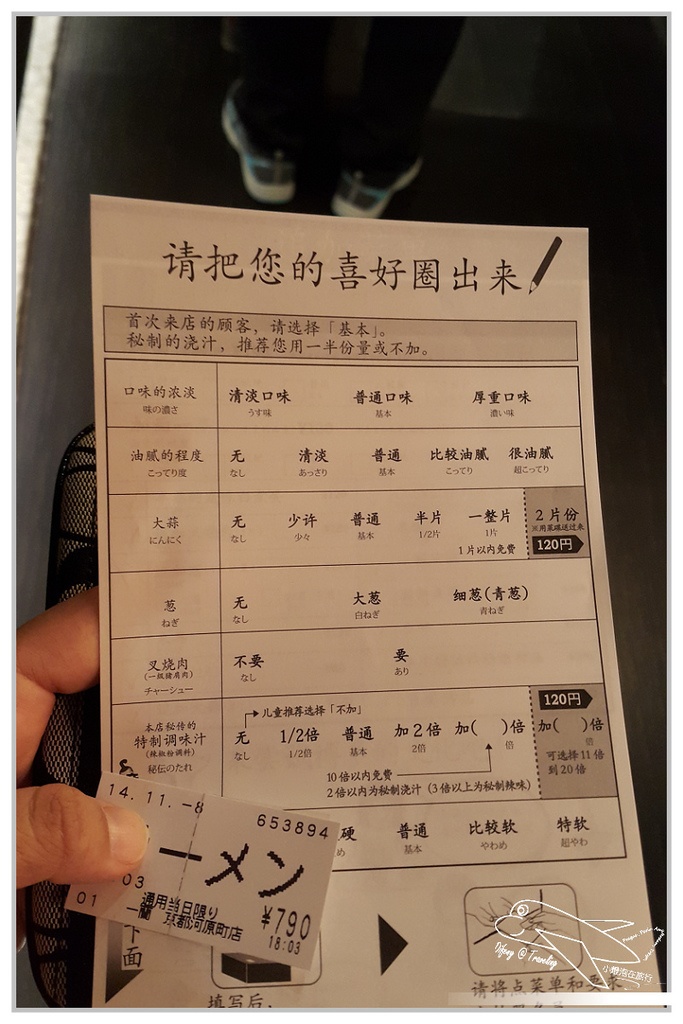 请把您的喜好圈出来
首次来店的顾客，请选择「基本」。
秘制的浇汁，推荐您用一半份量或不加。
口味的浓淡 清淡口味 普通口味 厚重口味
味の濃さ うす味 基本 濃い味
油腻的程度 无 清淡 普通 比较油腻 很油腻
こってり度 なし あっさり 基本 こってり 超こってり
大蒜 无 少许 普通 半片 一整片 2片份
にんにく なし 少々 基本 1/2片 1片 ※用菜碟送过来
1片以内免费 120円
葱 无 大葱 细葱(青葱)
ねぎ なし 白ねぎ 青ねぎ
叉烧肉 不要 要
(一级猪肩肉) なし あり
チャーシュー
120円
儿童推荐选择「不加」
本店秘传的
特制调味汁 无 1/2倍 普通 加2倍 加( )倍 加( )倍
(辣椒粉调料) なし 1/2倍 基本 2倍 倍 倍
秘伝のたれ
10倍以内免费
2倍以内为秘制浇汁（3倍以上为秘制辣味）
可选择11倍
到20倍
硬 普通 比较软 特软
め 基本 やわめ 超やわ
14.11.-8
653894
ーメン
03
01
通用当日限り
一蘭 京都河原町店
¥790
18:03
下面
填写后，
请将点菜单和要求
Difeny @ Traveling
小燈泡在旅行